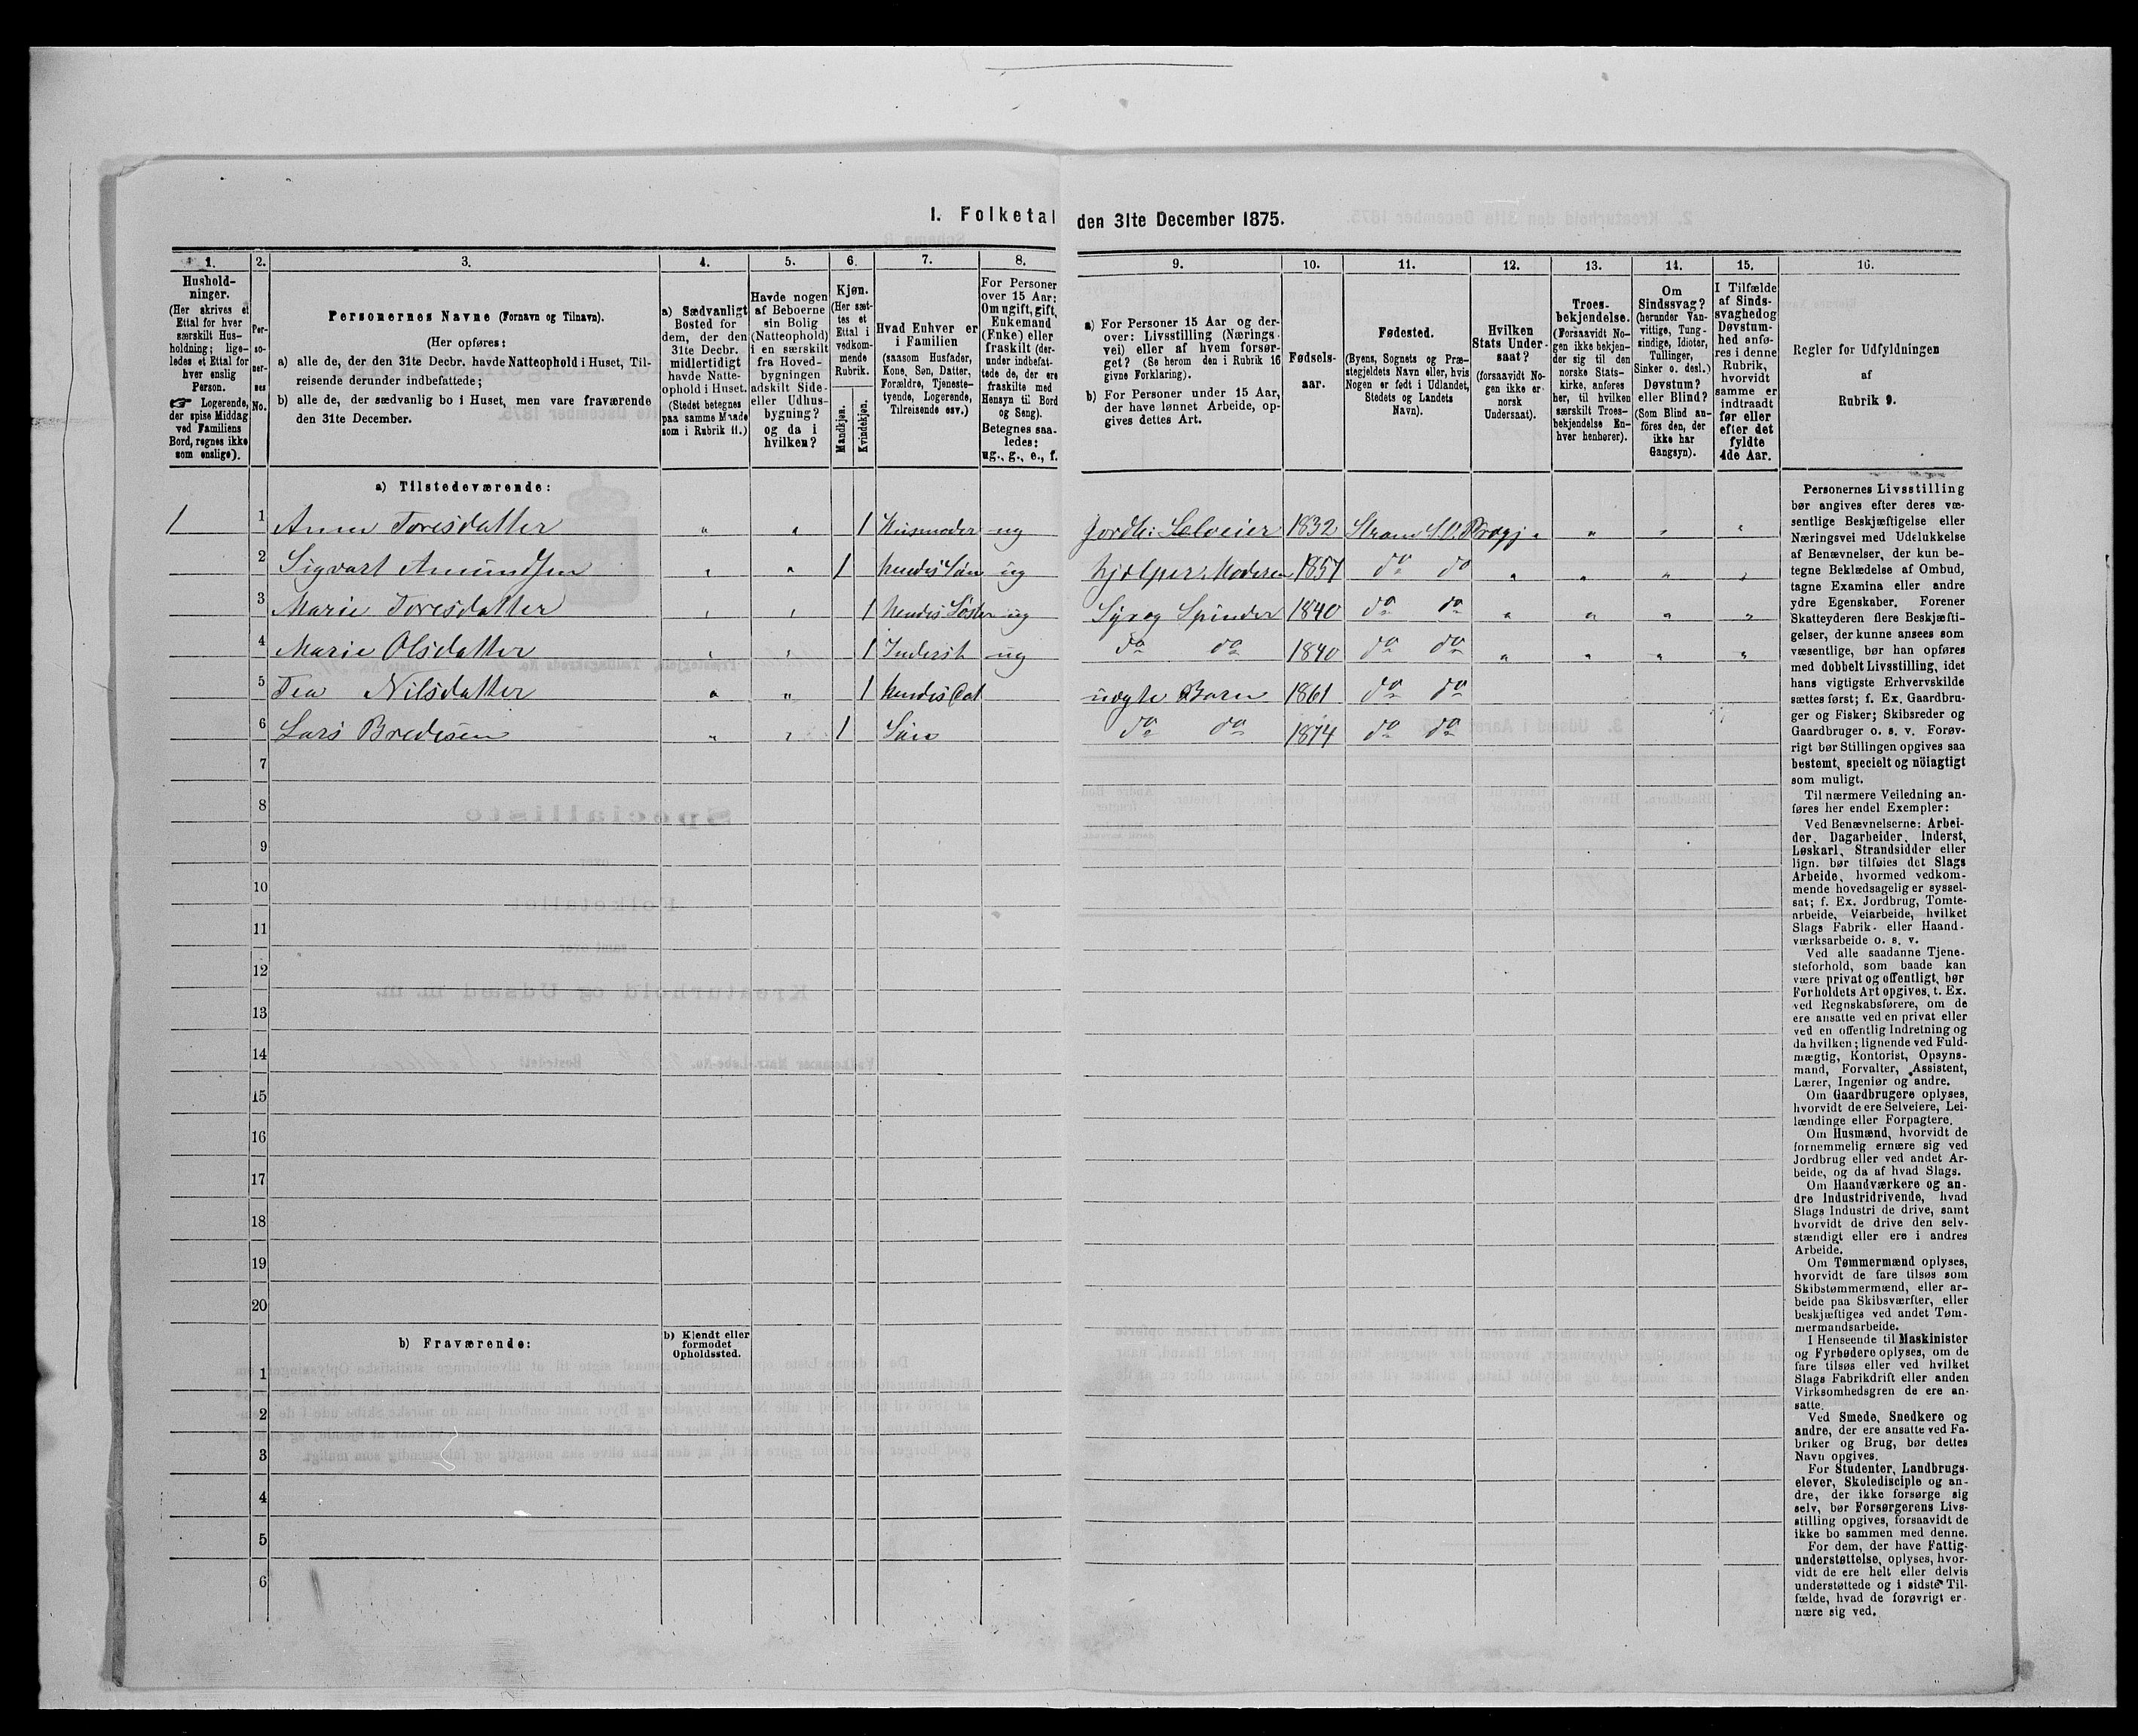 I. Folketal den 31te December 1875.
1.
Hushold-
ninger.
(Her skrives et
Ettal for hver
særskilt Hus-
holdning; lige-
ledes et Ettal for
hver enslig
Person.
☞ Logerende,
der spise Middag
ved Familiens
Bord, regnes ikke
som enslige).
2.
Per-
so-
ner-
nes
No.
3.
Personernes Navne (Fornavn og Tilnavn).
(Her opføres:
a) alle de, der den 31te Decbr. havde Natteophold i Huset, Til-
reisende derunder indbefattede;
b) alle de, der sædvanlig bo i Huset, men vare fraværende
den 31te December.
4.
a) Sædvanligt
Bosted for
dem, der den
31te Decbr.
midlertidigt
havde Natte-
ophold i Huset.
(Stedet betegnes
paa samme Maade
som i Rubrik 11.)
5.
Havde nogen
af Beboerne
sin Bolig
(Natteophold)
i en særskilt
fra Hoved-
bygningen
adskilt Side-
eller Udhus-
bygning?
og da i
hvilken?
6.
Kjøn.
(Her sæt-
tes et
Ettal i
vedkom-
mende
Rubrik.
Mandkjøn.
Kvindekjøn.
7.
Hvad Enhver er
i Familien
(saasom Husfader,
Kone, Søn, Datter,
Forældre, Tjeneste-
tyende, Logerende,
Tilreisende osv.)
8.
For Personer
over 15 Aar:
Om ugift, gift,
Enkemand
(Enke) eller
fraskilt (der-
under indbefat-
tede de, der ere
fraskilte med
Hensyn til Bord
og Seng).
Betegnes saa-
ledes:
ug., g., e., f.
9.
a) For Personer 15 Aar og der-
over: Livsstilling (Nærings-
vei) eller af hvem forsør-
get? (Se herom den i Rubrik 16
givne Forklaring).
b) For Personer under 15 Aar,
der have lønnet Arbeide, op-
gives dettes Art.
10.
Fødsels-
aar.
11.
Fødested.
(Byens, Sognets og Præ-
stegjeldets Navn eller, hvis
Nogen er født i Udlandet,
Stedets og Landets
Navn).
12.
Hvilken
Stats Under-
saat?
(forsaavidt No-
gen ikke er
norsk
Undersaat).
13.
Troes-
bekjendelse.
(Forsaavidt No-
gen ikke bekjen-
der sig til den
norske Stats-
kirke, anføres
her, til hvilken
særskilt Troes-
bekjendelse En-
hver henhører).
14.
Om
Sindssvag?
(herunder Van-
vittige, Tung-
sindige, Idioter,
Tullinger,
Sinker o. desl.)
Døvstum?
eller Blind?
(Som Blind an-
føres den, der
ikke har
Gangsyn).
15.
I Tilfælde
af Sinds-
svaghed og
Døvstum-
hed anfø-
res i denne
Rubrik,
hvorvidt
samme er
indtraadt
før eller
efter det
fyldte
4de Aar.
16.
Regler for Udfyldningen
af
Rubrik 9.
a) Tilstedeværende:
1 1 Anne Toresdatter " " 1 Husmoder ug Jordb: Selveier 1832 Strand S. P. " " " "
2 Sigvart Amundsen " " 1 hendes Søn ug hjælper Moderen 1857 do do " " " "
3 Marie Toresdatter " " 1 hendes Søster ug Sy og Spinder 1840 do do " " " "
4 Marie Olsdatter " " 1 Inderst ug do do 1840 do do " " " "
5 Tea Nilsdatter " " 1 hendes Dat uægte Barn 1861 do do
6 Lars Bredesen " " 1 Søn do do 1874 do do
7
8
9
10
11
12
13
14
15
16
17
18
19
20
b) Fraværende:
b) Kjendt eller
formodet
Opholdssted.
1
2
3
4
5
6
Personernes Livsstilling
bør angives efter deres væ-
sentlige Beskjæftigelse eller
Næringsvei med Udelukkelse
af Benævnelser, der kun be-
tegne Beklædelse af Ombud,
tagne Examina eller andre
ydre Egenskaber. Forener
Skatteyderen flere Beskjæfti-
gelser, der kunne ansees som
væsentlige, bør han opføres
med dobbelt Livsstilling, idet
hans vigtigste Erhvervskilde
sættes først; f. Ex. Gaardbru-
ger og Fisker; Skibsreder og
Gaardbruger o. s. v. Forøv-
rigt bør Stillingen opgives saa
bestemt, specielt og nöiagtigt
som muligt.
Til nærmere Veiledning an-
føres her endel Exempler:
Ved Benævnelserne: Arbei-
der, Dagarbeider, Inderst,
Løskarl, Strandsidder eller
lign. bør tilføies det Slags
Arbeide, hvormed vedkom-
mende hovedsagelig er syssel-
sat; f. Ex. Jordbrug, Tomte-
arbeide, Veiarbeide, hvilket
Slags Fabrik- eller Haand-
værksarbeide o. s. v.
Ved alle saadanne Tjene-
steforhold, som baade kan
være privat og offentligt, bør
Forholdets Art opgives, t. Ex.
ved Regnskabsførere, om de
ere ansatte ved en privat eller
ved en offentlig Indretning og
da hvilken; lignende ved Fuld-
mægtig, Kontorist, Opsyns-
mand, Forvalter, Assistent,
Lærer, Ingeniør og andre.
Om Gaardbrugere oplyses,
hvorvidt de ere Selveiere, Lei-
lændinge eller Forpagtere.
Om Husmænd, hvorvidt de
fornemmelig ernære sig ved
Jordbrug eller ved andet Ar-
beide, og da af hvad Slags.
Om Haandværkere og an-
dre Industridrivende, hvad
Slags Industri de drive, samt
hvorvidt de drive den selv-
stændigt eller ere i andres
Arbeide.
Om Tømmermænd oplyses,
hvorvidt de fare tilsøs som
Skibstømmermænd, eller ar-
beide paa Skibsværfter, eller
beskjæftiges ved andet Tøm-
mermandsarbeide.
I Henseende til Maskinister
og Fyrbødere oplyses, om de
fare tilsøs eller ved hvilket
Slags Fabrikdrift eller anden
Virksomhedsgren de ere an-
satte.
Ved Smede, Snedkere og
andre, der ere ansatte ved Fa-
briker og Brug, bør dettes
Navn opgives.
For Studenter, Landbrugs-
elever, Skoledisciple og an-
dre, der ikke forsørge sig
selv, bør Forsørgerens Livs-
stilling opgives, forsaavidt de
ikke bo sammen med denne.
For dem, der have Fattig-
understøttelse, oplyses, hvor-
vidt de ere helt eller delvis
understøttede og i sidste Til-
fælde, hvad de forøvrigt er-
nære sig ved.